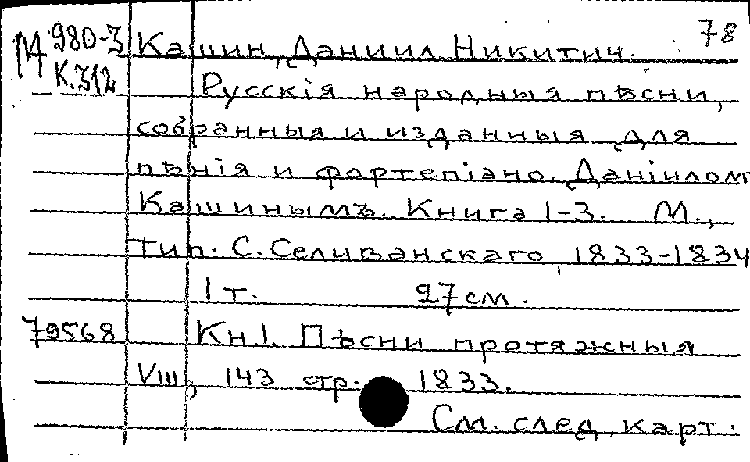 78
М 980-3 Кашин, Даниил Никитич.
К.312 Русскія народныя пѣсни,
собранныя и изданныя для
пѣнія и фортепіано Даніилом
Кашинымъ. Книга 1-3. М.,
Тип. С. Селивановскаго, 1833-1834
1 т. 27 см.
79568 Кн 1. Пѣсни протяжныя
VIII, 143 стр. 1833.
См. след. карт.